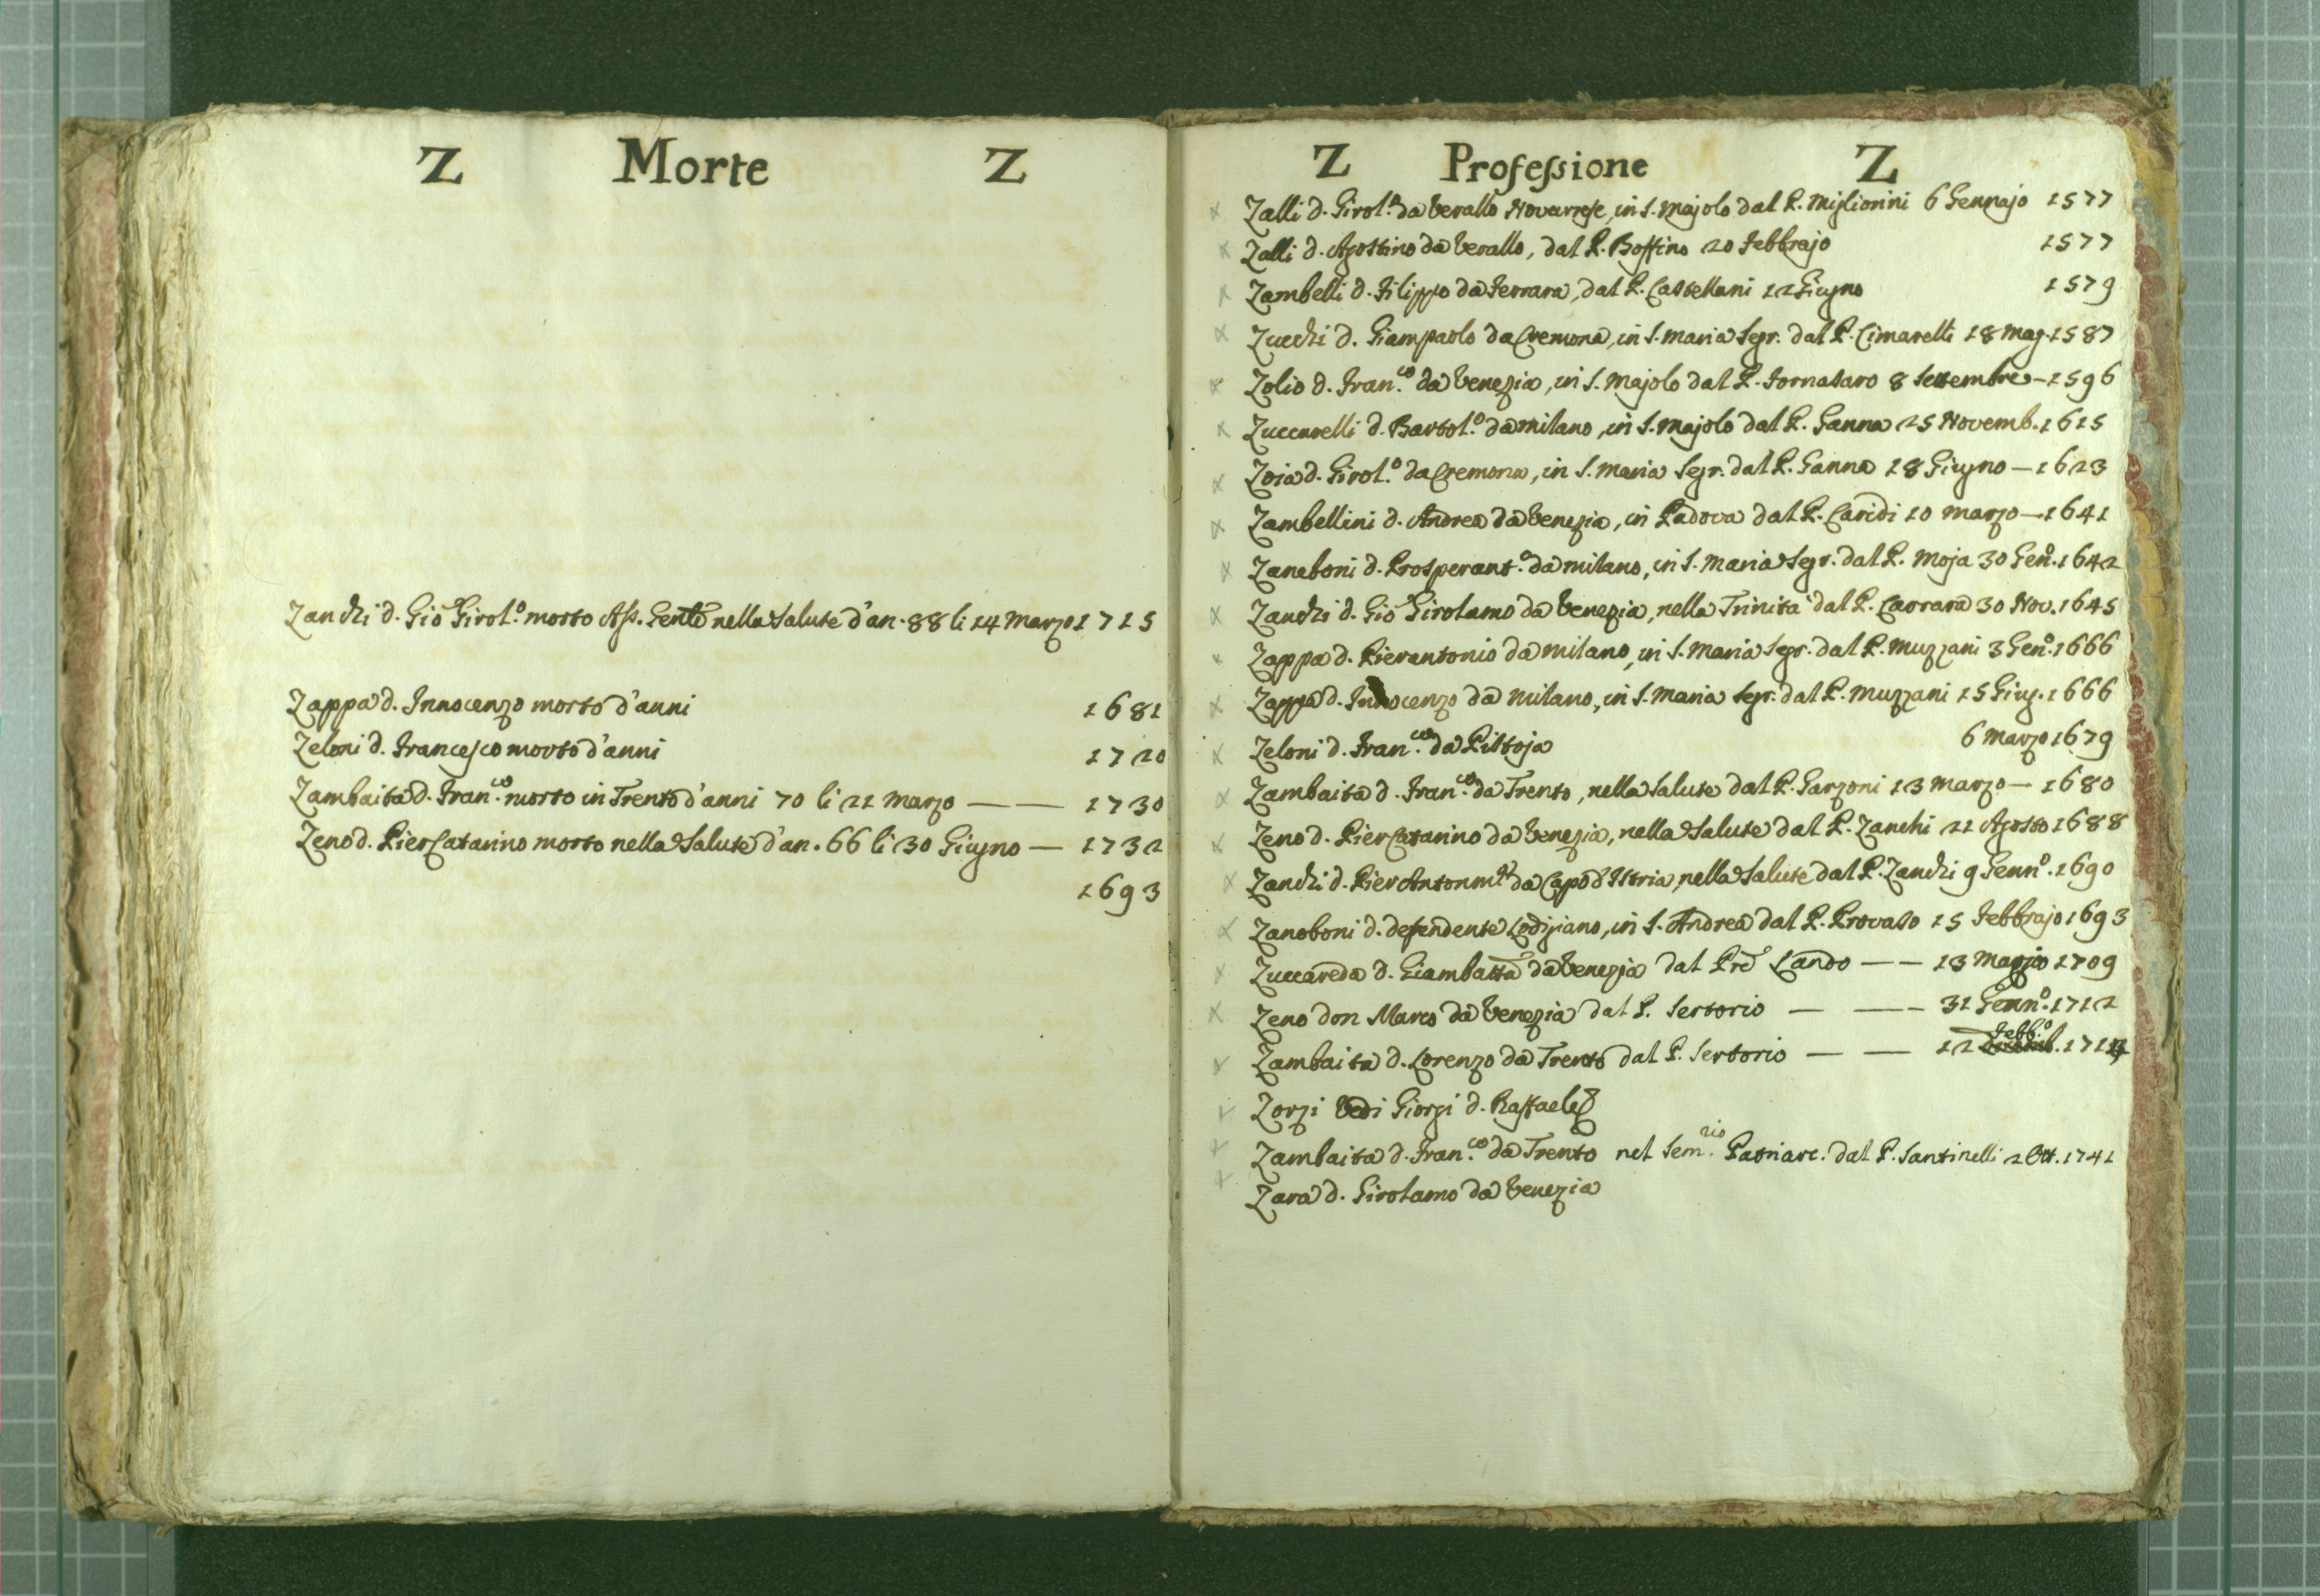 Z Morte Z
Zanchi d. Gio Girol.º morto Ass. Genle nella Salute d'an. 88 li 14 Marzo 1715
Zappa d. Innocenzo morto d'anni 1681
Zeloni d. Francesco morto d'anni 1720
Zambaita d. Fran.co morto in Trento d'anni 70 li 21 Marzo — — 1730
Zeno d. Pier Catarino morto nella Salute d'an. 66 li 30 Giugno — 1732
1693
Z Professione Z
Zalli d. Girol.º da Verallo Novarese, in S. Majolo dal P. Migliorini 6 Gennajo 1577
Zalli d. Agostino da Verallo, dal P. Boffino 20 Febbrajo 1577
Zambelli d. Filippo da Ferrara, dal P. Castellani 12 Giugno 1579
Zucchi d. Giampaolo da Cremona, in S. Maria Segr. dal P. Cimarelli 18 Mag. 1587
Zolio d. Fran.co da Venezia, in S. Majolo dal P. Fornasaro 8 Settembre — 1596
Zuccarelli d. Bartol.º da Milano, in S. Majolo dal P. Ganna 25 Novemb. 1615
Zoia d. Girol.º da Cremona, in S. Maria Segr. dal P. Ganna 18 Giugno — 1623
Zambellini d. Andrea da Venezia, in Padova dal P. Caridi 10 Marzo — 1641
Zaneboni d. Prosperant.º da Milano, in S. Maria Segr. dal P. Moja 30 Genº. 1642
Zanchi d. Gio Girolamo da Venezia, nella Trinità dal P. Carrara 30 Nov. 1645
Zappa d. Pierantonio da Milano, in S. Maria Segr. dal P. Muzzani 3 Genº. 1666
Zappa d. Innocenzo da Milano, in S. Maria Segr. dal P. Muzzani 15 Giug. 1666
Zeloni d. Fran.co da Pistoja 6 Marzo 1679
Zambaita d. Fran.co da Trento, nella Salute dal P. Garzoni 13 Marzo — 1680
Zeno d. Pier Catarino da Venezia, nella Salute dal P. Zanchi 21 Agosto 1688
Zanchi d. Pier Antonmª da Capo d'Istria, nella Salute dal P. Zanchi 9 Gennº. 1690
Zanoboni d. Defendente Lodigiano, in S. Andrea dal P. Provaso 15 Febbrajo 1693
Zuccareda d. Giambatta da Venezia dal Prē Lando — — 13 Maggio 1709
Zeno don Marco da Venezia dal P. Sertorio — — 31 Gennº. 1712
Zambaita d. Lorenzo da Trento dal P. Sertorio — — 12 Febb.º
Zorzi Vedi Giorgi d. Raffaele
Zambaita d. Fran.co da Trento nel Sem.rio Patriarc. dal P. Santinelli 2 Ott. 1741
Zara d. Girolamo da Venezia